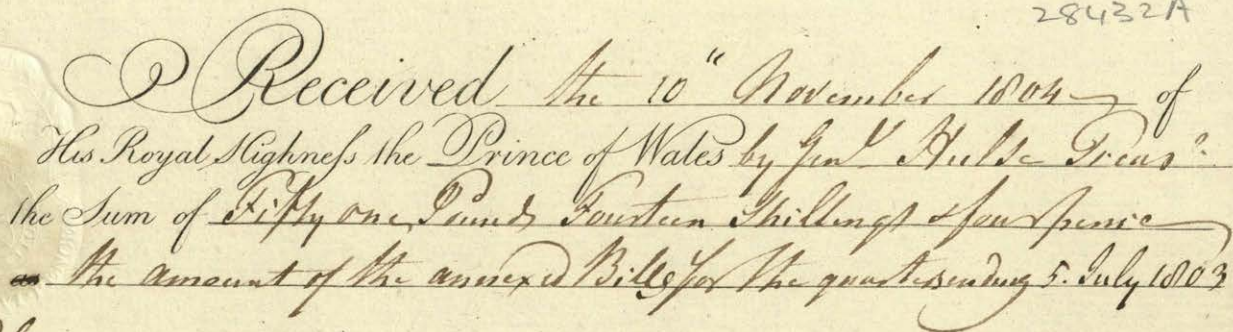 28432A
Received the 10" November 1804 of
His Royal Highneſs the Prince of Wales by Genl Hulse Treasr
the Sum of Fifty one Pounds Fourteen Shillings & four pence
as the amount of the annexed Bills for the quarter ending 5. July 1803